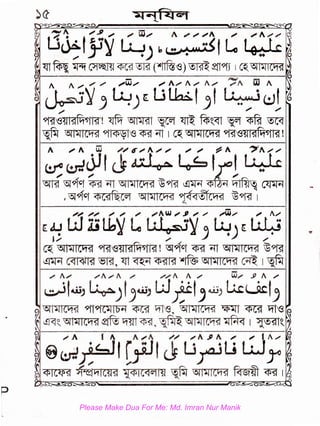 ১৫ মনযিল
عَلَيْهَا مَا اكْتَسَبَتْ ۗ رَبَّنَا لَا تُؤَاخِذْنَا
যা কিছু মন্দ
إِنْ نَسِينَا أَوْ أَخْطَأْنَا ۚ رَبَّنَا وَلَا تَحْمِلْ
পরওয়ারদিগার! যদি আমরা ভুলে যাই কিংবা ভুল করি তবে
তুমি আমাদের পাকড়াও কর না । হে আমাদের পরওয়ারদিগার!
عَلَيْنَا إِصْرًا كَمَا حَمَلْتَهُ عَلَى الَّذِينَ مِنْ
আর অর্পণ কর না আমাদের উপর এমন কঠিন দায়িত্ব যেমন
অর্পণ করেছিলে আমাদের পূর্ববর্তীদের উপর ।
قَبْلِنَا ۚ رَبَّنَا وَلَا تُحَمِّلْنَا مَا لَا طَاقَةَ لَنَا بِهِ ۖ
হে আমাদের পরওয়ারদিগার! অর্পণ কর না আমাদের উপর
এমন বোঝার ভার, যা বহন করার শক্তি আমাদের নেই । তুমি
وَاعْفُ عَنَّا وَاغْفِرْ لَنَا وَارْحَمْنَا ۚ أَنْتَ
আমাদের পাপমোচন করে দাও, আমাদের ক্ষমা করে দাও
এবং আমাদের প্রতি দয়া কর, তুমিই আমাদের মনিব । সুতরাং
مَوْلَانَا فَانْصُرْنَا عَلَى الْقَوْمِ الْكَافِرِينَ
কাফের সম্প্রদায়ের মুকাবেলায় তুমি আমাদের বিজয়ী কর ।
Please Make Dua For Me: Md. Imran Nur Manik